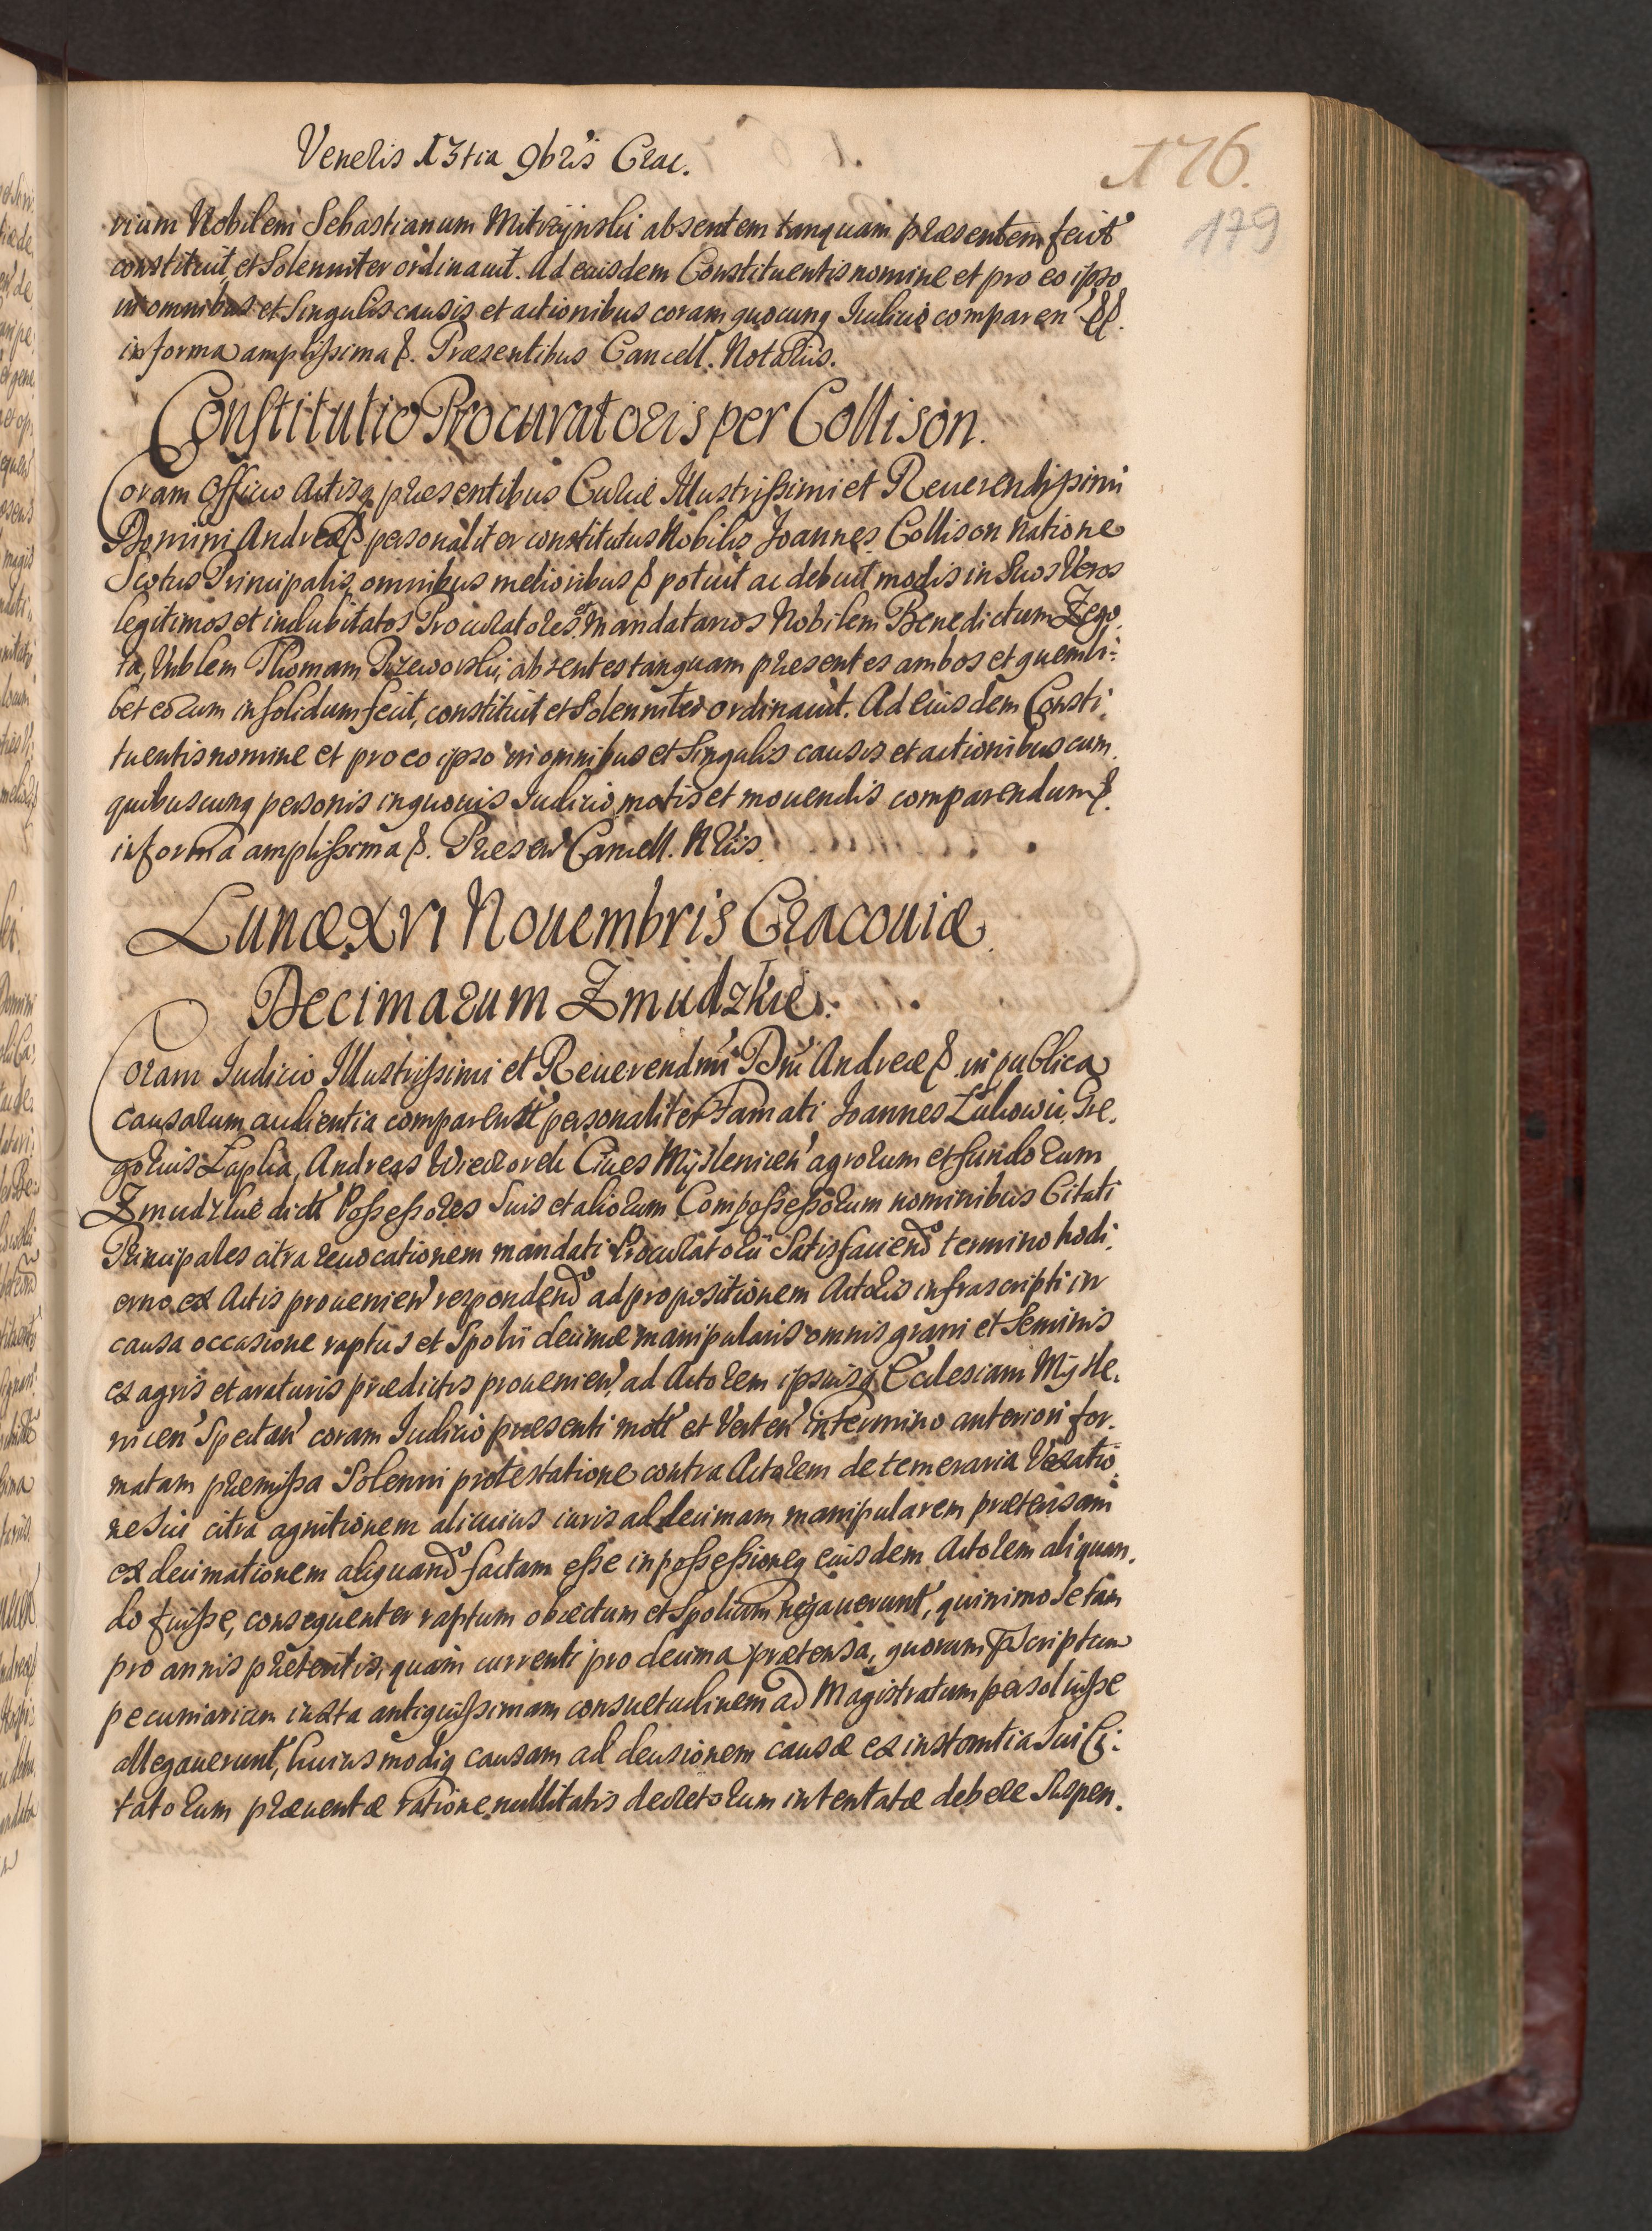 Veneris 13tia 9bris Crac.
176.
179
rium Nobilem Sebastianum Mitrzynski absentem tanquam præsentem fecit
constituit, et Solenniter ordinauit. Ad euisdem Constituentis nomine et pro eo ipso
in omnibus et Singulis causis et actionibus coram quocunq Iudicio comparen' &&.
in forma amplissima &. Præsentibus Cancell. Notariis.
Constitutio Procuratoris per Collison.
Coram Officio Actisq præsentibus Curiæ Illustrissimi et Reuerendissimi
Domini Andreæ & personaliter constitutus Nobilis Joannes Collison Natione
Scotus Principalis, omnibus melioribus & potuit ac debuit modis in Suos Veros
legitimos et indubitatos Procuratores et Mandatarios Nobilem Benedictum Zego,
ta, Nublem Thomam Przeworski, absentes tanquam præsentes ambos et quemli:
bet eorum in solidum fecit, constituit et Solenniter ordinauit. Ad euisdem Consti,
tuentis nomine et pro eo ipso in omnibus et Singulis causis et actionibus cum
quibuscunq personis in quouis Iudicio, motis et mouendis comparendum &.
in forma amplissima &. Præsen' Cancell. Nriis.
Lunæ XVI Nouembris Cracouiæ
Decimarum Zmudzkie.
Coram Iudicio Illustrissimi et Reuerendmi Dni Andreæ & in publica
causarum audientia comparentt' personaliter Famati Joannes Lukowic, Gre,
gorius Lapka, Andreas Wieczorek Ciues Myslenicen' agrorum et fundorum
Zmudzkie dictt' Possessores Suis et aliorum Compossessorum nominibus Citati
Principales citra reuocationem mandati Procuratorii Satisfaciendo termino hodi,
erno ex Actis prouenien' respondendo ad propositionem Actoris infrascripti in
causa occasione raptus et Spolii decimæ manipularis omnis grani et Seminis
ex agris et araturis prædictis prouenien', ad Actorem ipsiusq Ecclesiam Mysle,
nicen' Spectan' coram Iudicio præsenti mott' et Verten' in termino anteriori for,
matam præmissa Solenni protestatione contra Actorem de temeraria Vexatio,
ne Sui citra agnitionem alicuius iuris ad decimam manipularem prætensam
ex decimationem aliquando factam esse in possessioneq euisdem Actorem aliquan,
do fuisse, consequenter raptum obiectum et Spolium negauerunt, quinimo Se tam
pro annis præteritis, quàm currenti pro decima prætensa, quorum præscriptum
pecuniariam iuxta antiquissimam consuetudinem ad Magistratum persoluisse
allegauerunt, huiusmodiq causam ad decisionem causæ ex instantia Sui Ci:
tatorum præuentæ ratione nullitatis decretorum intentatæ debere Suspen,